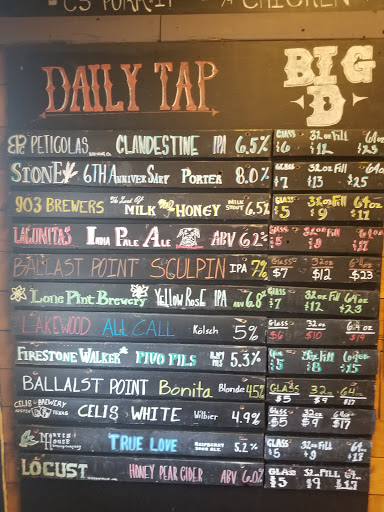 CHICKEN
DAILY TAP
BIG D
PETICOLAS BREWING CO. CLANDESTINE IPA 6.5% GLASS $6 32oz Fill $12 64oz $23
STONE 6TH ANNIVERSARY PORTER 8.0% GLASS $7 32oz Fill $13 64oz $25
903 BREWERS The Land Of MILK and HONEY MILK STOUT 6.5% GLASS $5 32oz Fill $9 64oz $17
LAGUNITAS INDIA PALE ALE ABV 6.2% GLASS $5 32oz Fill 64oz
BALLAST POINT SCULPIN IPA 7% GLASS $7 32oz $12 64oz $23
Lone Pint Brewery YELLOW ROSE IPA ABV 6.8% GLASS $7 32oz Fill $12 64oz $23
LAKEWOOD ALL CALL Kölsch 5% GLASS $6 32oz $10 64oz $19
FIRESTONE WALKER PIVO PILS 5.3% $5 32oz Fill $8 64oz $15
BALLALST POINT Bonita Blonde 4.5% GLASS $5 32oz $9 64oz $17
CELIS BREWERY AUSTIN TEXAS CELIS WHITE Witbier 4.9% GLASS $5 32oz $9 64oz $17
MARTIN HOUSE TRUE LOVE RASPBERRY SOUR ALE 5.2% GLASS $5 32oz Fill $9 64oz $18
LOCUST HONEY PEAR CIDER ABV 6.0% GLASS $5 32oz Fill $9 64oz $17